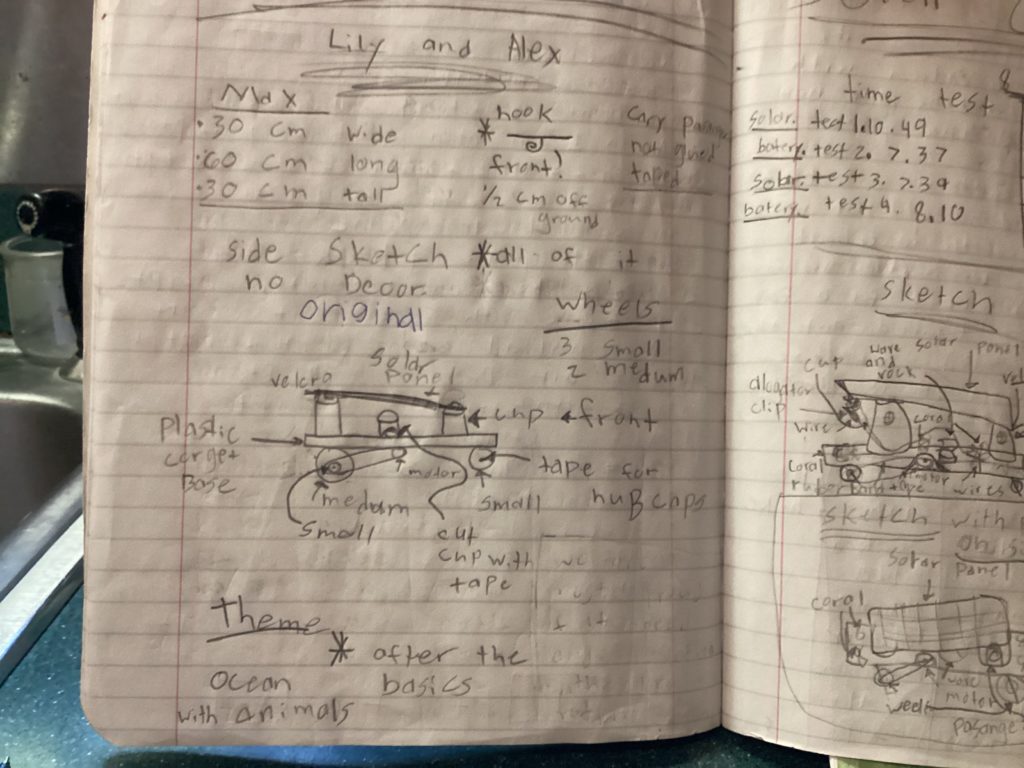 Lily and Alex
Max
• 30 cm wide
• 60 cm long
• 30 cm tall
* hook
front!
1/2 cm off
ground
not glued
taped
side Sketch *all of it
no Decor
original
wheels
3 small
2 medum
solar
panel
velcro
cup front
Plastic
corget
Base
motor
tape for
huB caps
medum
small
small
cut
cup with
tape
Theme
* after the
basics
ocean
with animals
time test
solar. test 1. 10.49
batery. test 2. 7.37
solar. test 3. 7.39
batery. test 4. 8.10
sketch
cut
wave
and
rock
solar
panel
alagator
clip
wire
coral
coral
motor
wires
sketch with
solar panel
coral
wave
motor